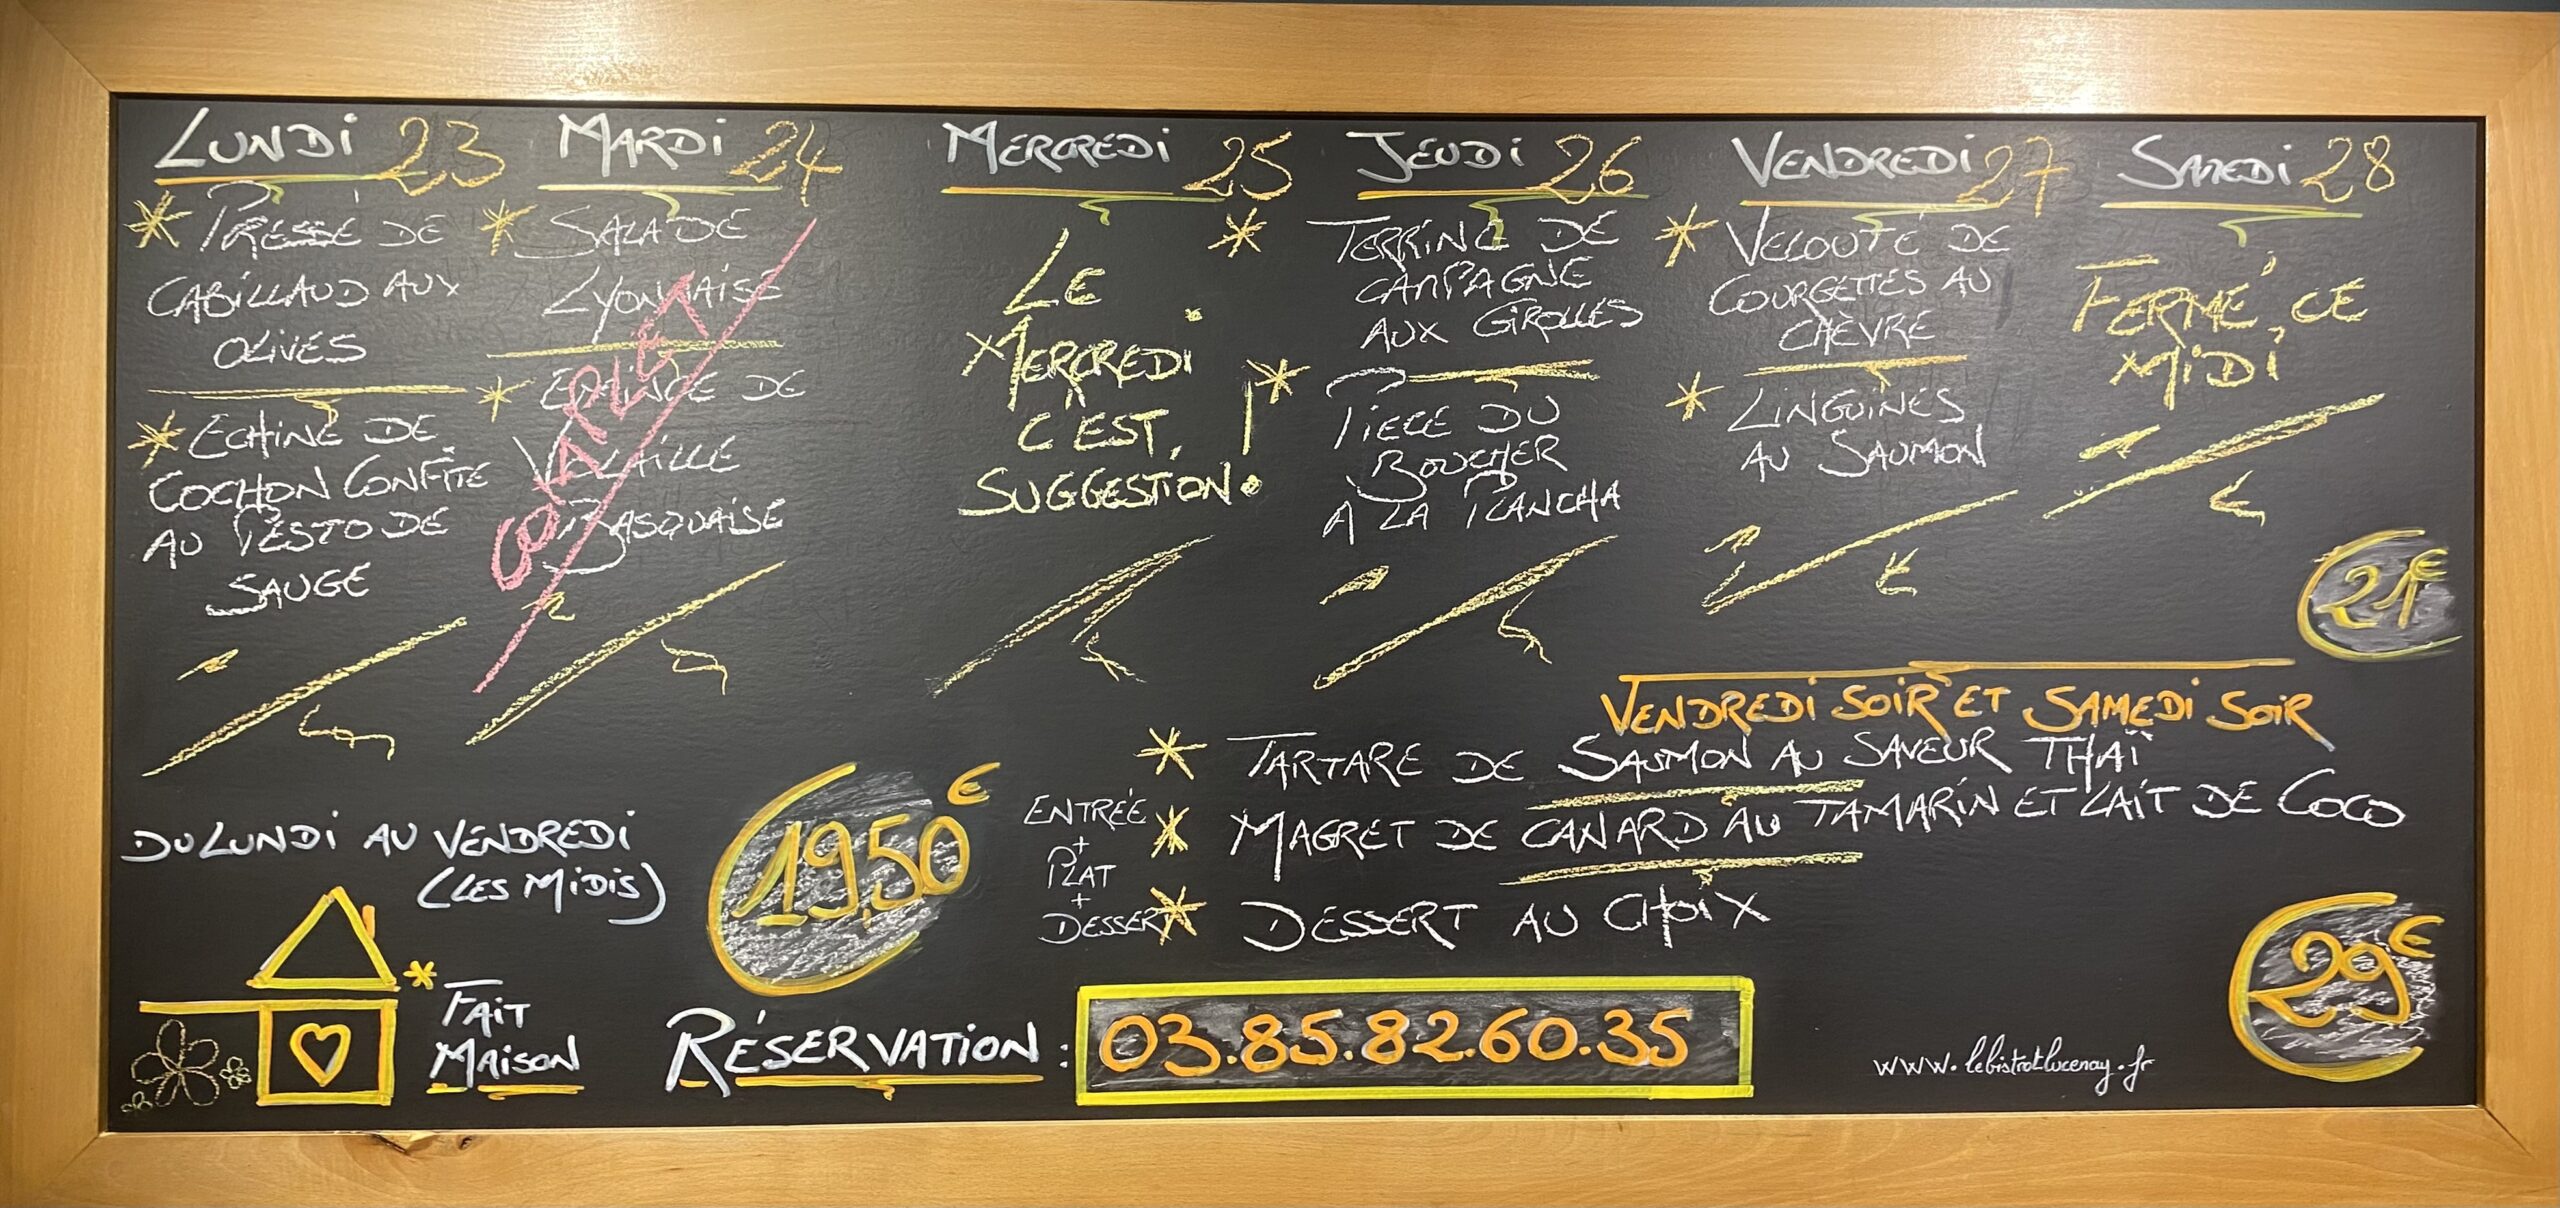 LUNDI 23
* PRESSÉ DE
CABILLAUD AUX
OLIVES
* ECHINE DE
COCHON CONFITE
AU PESTO DE
SAUGE
MARDI 24
* SALADE
LYONNAISE
* EMINCÉ DE
VOLAILLE
BASQUAISE
COMPLET
MERCREDI 25
LE
MERCREDI
C'EST
SUGGESTION!
JEUDI 26
* TERRINE DE
CAMPAGNE
AUX GIROLLES
* PIECE DU
BOUCHER
À LA PLANCHA
VENDREDI 27
* VELOUTÉ DE
COURGETTES AU
CHÈVRE
* LINGUINES
AU SAUMON
SAMEDI 28
FERMÉ CE
MIDI
21€
VENDREDI SOIR ET SAMEDI SOIR
* TARTARE DE SAUMON AU SAVEUR THAÏ
* MAGRET DE CANARD AU TAMARIN ET LAIT DE COCO
* DESSERT AU CHOIX
ENTRÉE
+
PLAT
+
DESSERT
29€
DU LUNDI AU VENDREDI
(LES MIDIS)
19,50€
* FAIT
MAISON
RÉSERVATION : 03.85.82.60.35
www.lebistrotlucenay.fr